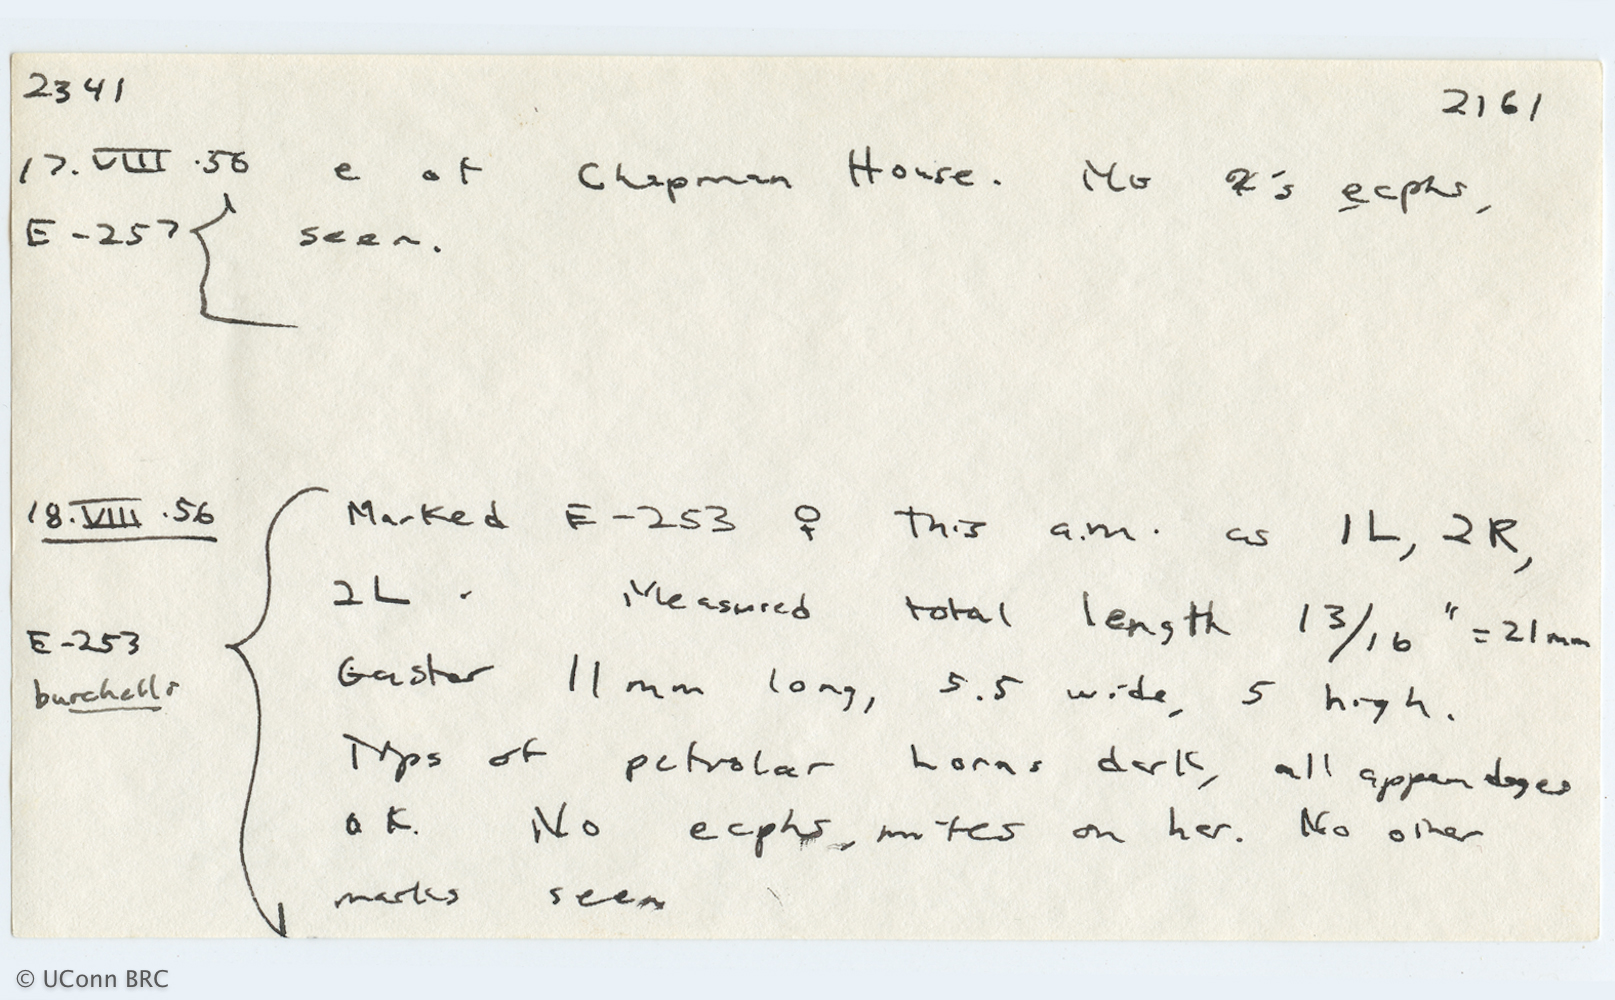 2341 2161
17.VIII.56 e of Chapman House. No ☿'s ecphs,
E-257 seen.
18.VIII.56 Marked E-253 ♀ this a.m. as 1L, 2R,
2L. Measured total length 13/16" = 21mm
E-253 Gaster 11 mm long, 5.5 wide, 5 high.
burchelli
Tips of petiolar horns dark, all appendages
OK. No ecphs, mites on her. No other
marks seen
© UConn BRC